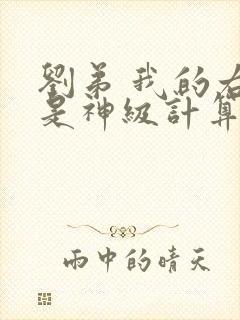 劉弟 我的右
是神級計算
雨中的晴天